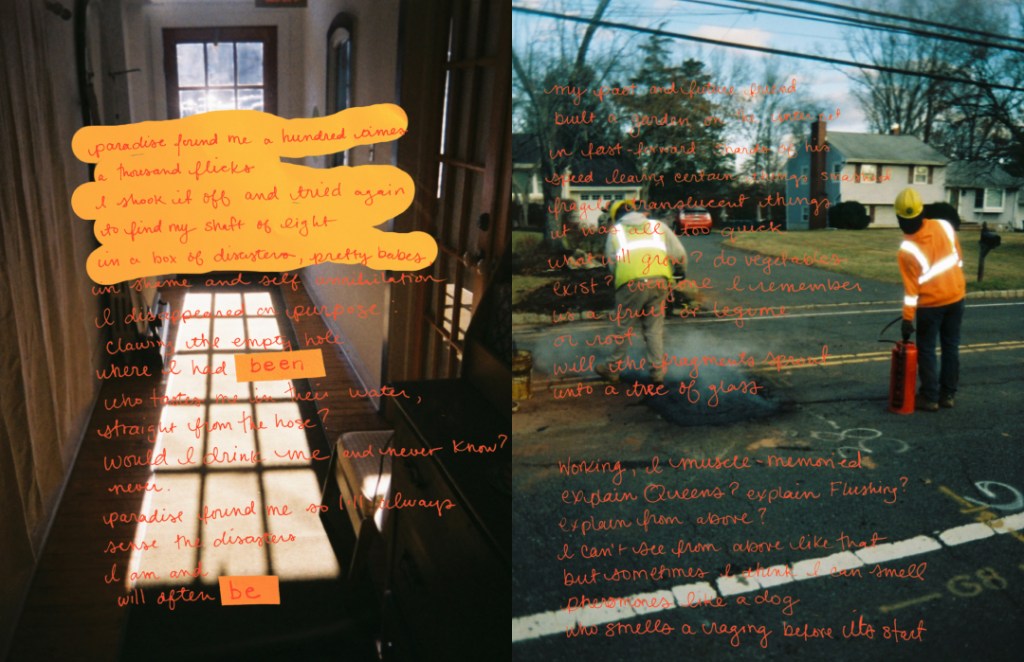 paradise found me a hundred times
a thousand flicks
I shook it off and tried again
to find my shaft of light
in a box of disasters, pretty babes
in shame and self annihilation
I disappeared on purpose
clawing the empty hole
where I had been
who tastes me in their water,
straight from the hose?
would I drink me and never know?
never.
paradise found me so I'll always
sense the disasters
I am and
will often be
my past and future friend
built a garden on the
in fast-forward thanks to his
speed leaving certain things
fragile translucent things
it was all too quick
what will grow? do vegetables
exist? everyone I remember
is a fruit or legume
or root
will the fragments sprout
into a tree of glass
Working, I muscle-memoried
explain Queens? explain Flushing?
explain from above?
I can't see from above like that
but sometimes I think I can smell
pheromones like a dog
who smells a raging before its start
G8